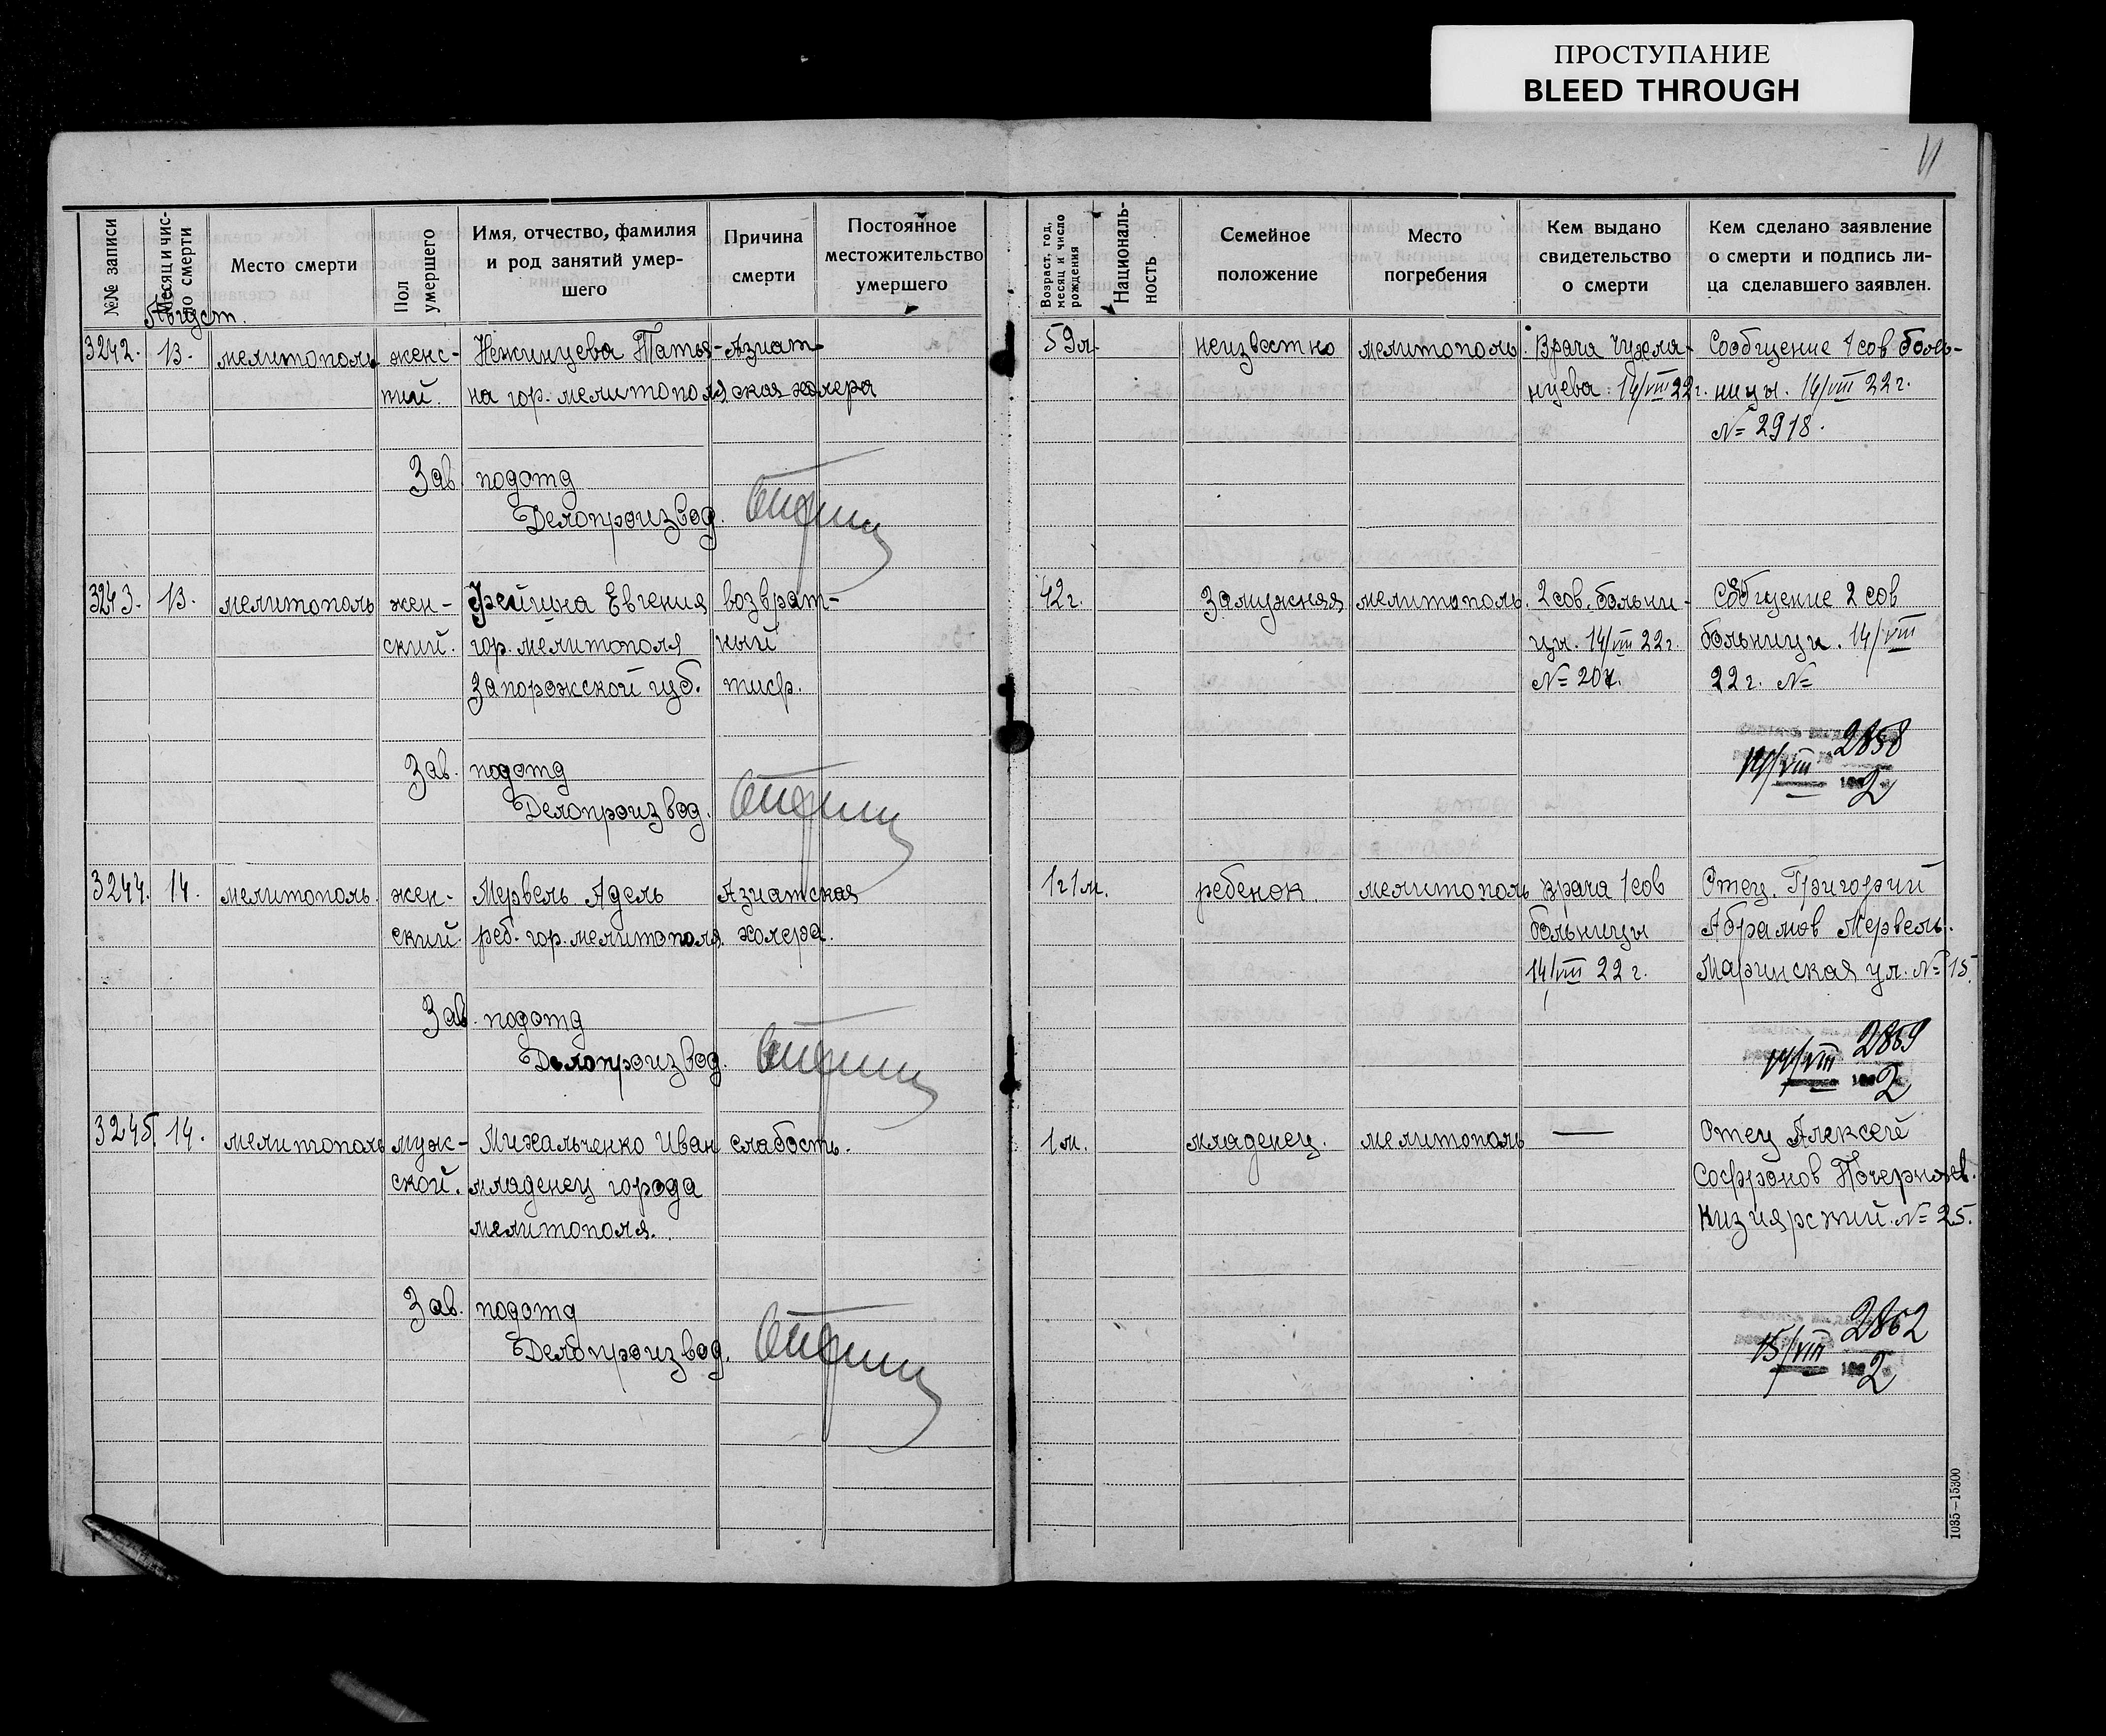 ПРОСТУПАНИЕ
BLEED THROUGH
№№ записи
Месяц и число смерти
Место смерти
Пол умершего
Имя, отчество, фамилия
и род занятий умер-
шего
Причина
смерти
Постоянное
местожительство
умершего
Возраст, год,
месяц и число
рождения
Националь-
ность
Семейное
положение
Место
погребения
Кем выдано
свидетельство
о смерти
Кем сделано заявление
о смерти и подпись ли-
ца сделавшего заявлен.
Август.
3242. 13. мелитополь женс- Нежинцева Татья- Азиат- 59л. неизвестно мелитополь. Врача Сообщение 1 сов боль-
кий. на гор. мелитополя ская холера нцева. 14/VIII 22г. ницы. 14/VIII 22г.
№ 2918.
Зав подотд
Делопроизвод.
3243. 13. мелитополь жен- Евгения возврат- 42г. Замужняя мелитополь. 2 сов. больни- Сообщение 2 сов
ский. гор. мелитополя ный цы. 14/VIII 22г. больницы. 14/VIII
Запорожской губ. тиф. № 207. 22г. №
2858
14/VIII 2
Зав. подотд
Делопроизвод.
3244. 14. мелитополь. жен- Мервель Адель Азиатская 1г1м. ребенок. мелитополь врача 1 сов Отец. Григорий
ский. реб. гор. мелитополя. холера. больницы Абрамов Мервель.
14/VIII 22г. Маринская ул. № 15.
Зав. подотд
Делопроизвод.
2859
14/VIII 2
3245. 14. мелитополь муж- Михальченко Иван слабость. 1м. младенец. мелитополь — Отец Алексей
ской. младенец города Софронов
мелитополя. Кизиярский. № 25.
Зав. подотд
Делопроизвод.
2862
15/VIII 2
1035—15300